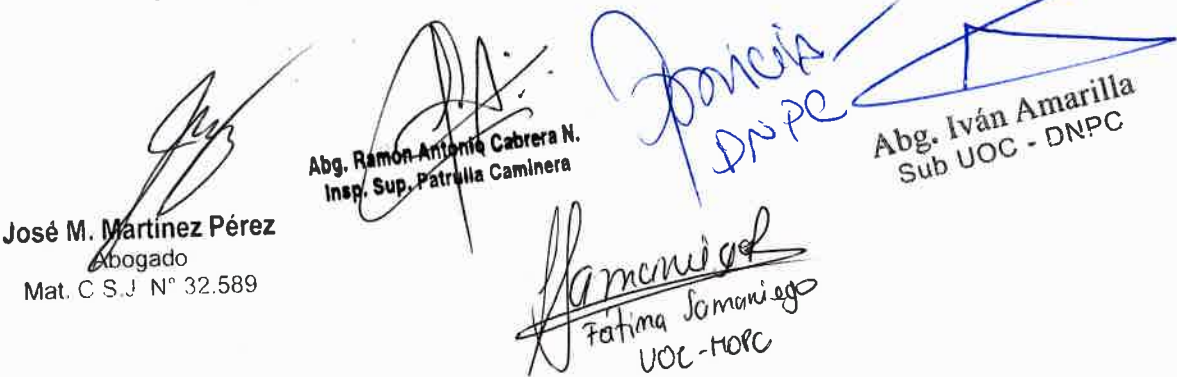 José M. Martínez Pérez
Abogado
Mat. C.S.J N° 32.589
Abg. Ramón Antonio Cabrera N.
Insp. Sup. Patrulla Caminera
DNPC
Abg. Iván Amarilla
Sub UOC - DNPC
Fátima Samaniego
UOC-MOPC